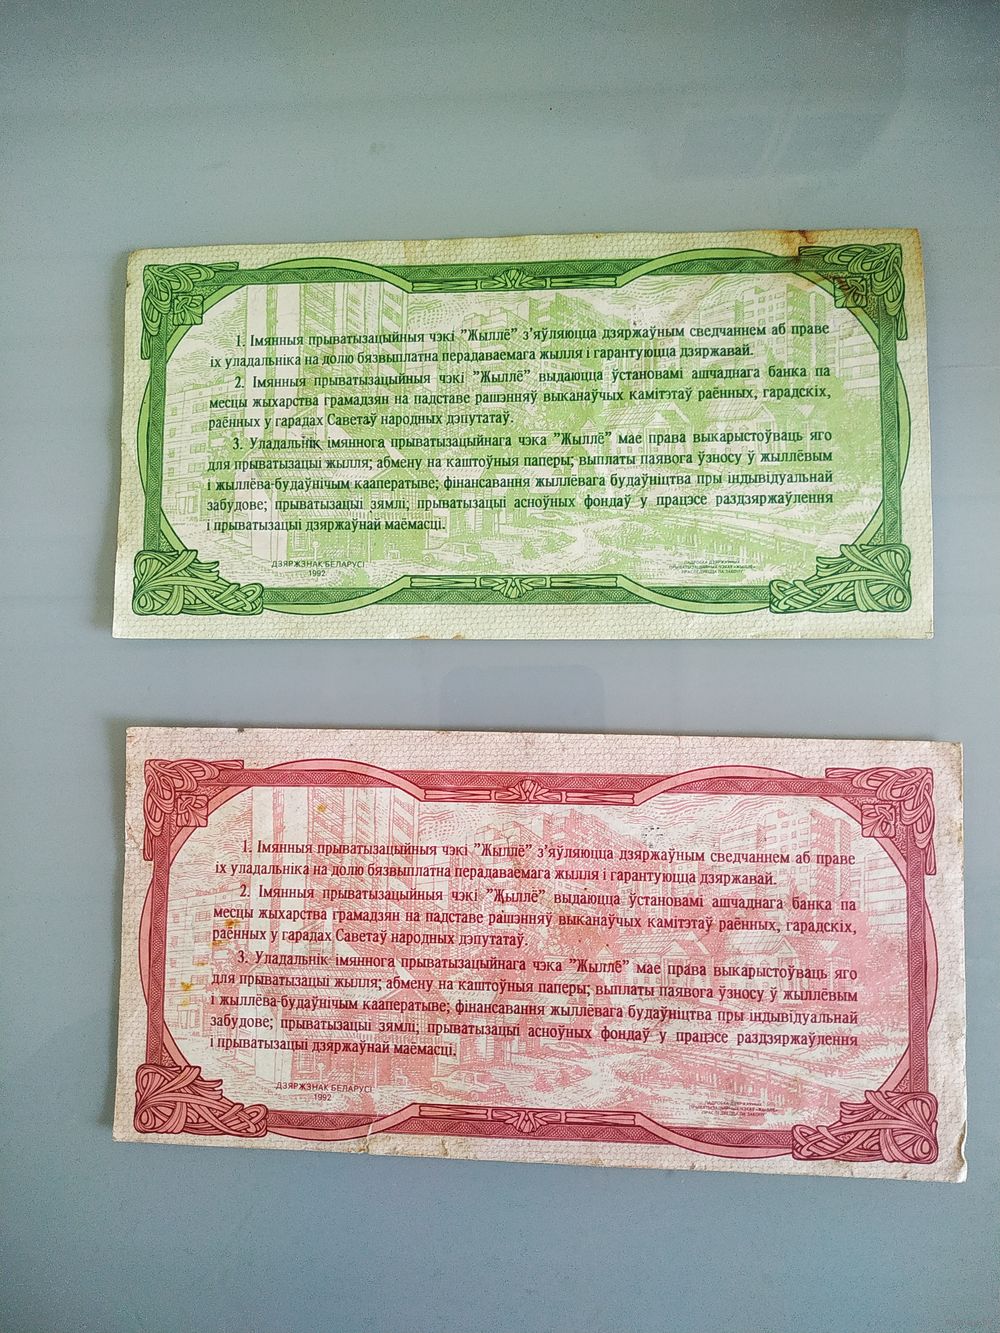 1. Імянныя прыватызацыйныя чэкі "Жыллё" з'яўляюцца дзяржаўным сведчаннем аб праве
іх уладальніка на долю бязвыплатна перадаваемага жылля і гарантуюцца дзяржавай.
2. Імянныя прыватызацыйныя чэкі "Жыллё" выдаюцца ўстановамі ашчаднага банка па
месцы жыхарства грамадзян на падставе рашэнняў выканаўчых камітэтаў раённых, гарадскіх,
раённых у гарадах Саветаў народных дэпутатаў.
3. Уладальнік імяннога прыватызацыйнага чэка "Жыллё" мае права выкарыстоўваць яго
для прыватызацыі жылля; абмену на каштоўныя паперы; выплаты паявога ўзносу ў жыллёвым
і жыллёва-будаўнічым кааператыве; фінансавання жыллёвага будаўніцтва пры індывідуальнай
забудове; прыватызацыі зямлі; прыватызацыі асноўных фондаў у працэсе раздзяржаўлення
і прыватызацыі дзяржаўнай маёмасці.
ДЗЯРЖЗНАК БЕЛАРУСІ
1992
ПАДРОБКА ДЗЯРЖАЎНЫХ
ПРЫВАТЫЗАЦЫЙНЫХ ЧЭКАЎ «ЖЫЛЛЁ»
ПРАСЛЕДУЕЦЦА ПА ЗАКОНУ
1. Імянныя прыватызацыйныя чэкі "Жыллё" з'яўляюцца дзяржаўным сведчаннем аб праве
іх уладальніка на долю бязвыплатна перадаваемага жылля і гарантуюцца дзяржавай.
2. Імянныя прыватызацыйныя чэкі "Жыллё" выдаюцца ўстановамі ашчаднага банка па
месцы жыхарства грамадзян на падставе рашэнняў выканаўчых камітэтаў раённых, гарадскіх,
раённых у гарадах Саветаў народных дэпутатаў.
3. Уладальнік імяннога прыватызацыйнага чэка "Жыллё" мае права выкарыстоўваць яго
для прыватызацыі жылля; абмену на каштоўныя паперы; выплаты паявога ўзносу ў жыллёвым
і жыллёва-будаўнічым кааператыве; фінансавання жыллёвага будаўніцтва пры індывідуальнай
забудове; прыватызацыі зямлі; прыватызацыі асноўных фондаў у працэсе раздзяржаўлення
і прыватызацыі дзяржаўнай маёмасці.
ДЗЯРЖЗНАК БЕЛАРУСІ
1992
ПАДРОБКА ДЗЯРЖАЎНЫХ
ПРЫВАТЫЗАЦЫЙНЫХ ЧЭКАЎ «ЖЫЛЛЁ»
ПРАСЛЕДУЕЦЦА ПА ЗАКОНУ